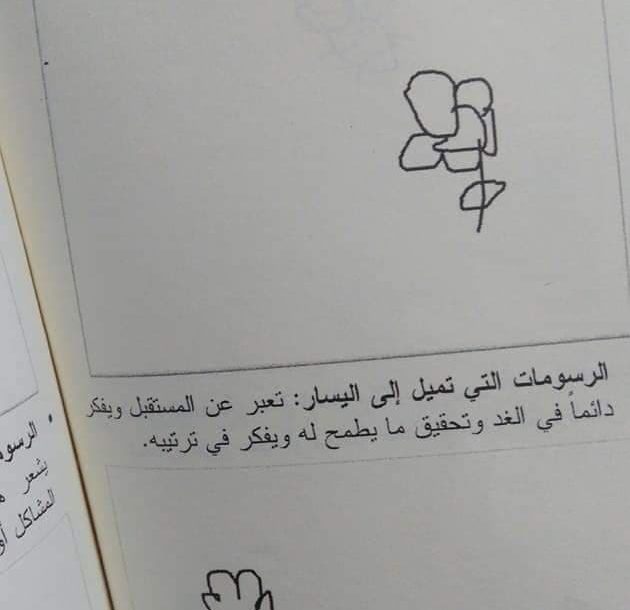 الرسومات التي تميل إلى اليسار: تعبر عن المستقبل ويفكر
دائماً في الغد وتحقيق ما يطمح له ويفكر في ترتيبه.
• الرسو
يشعر
المشاكل أو